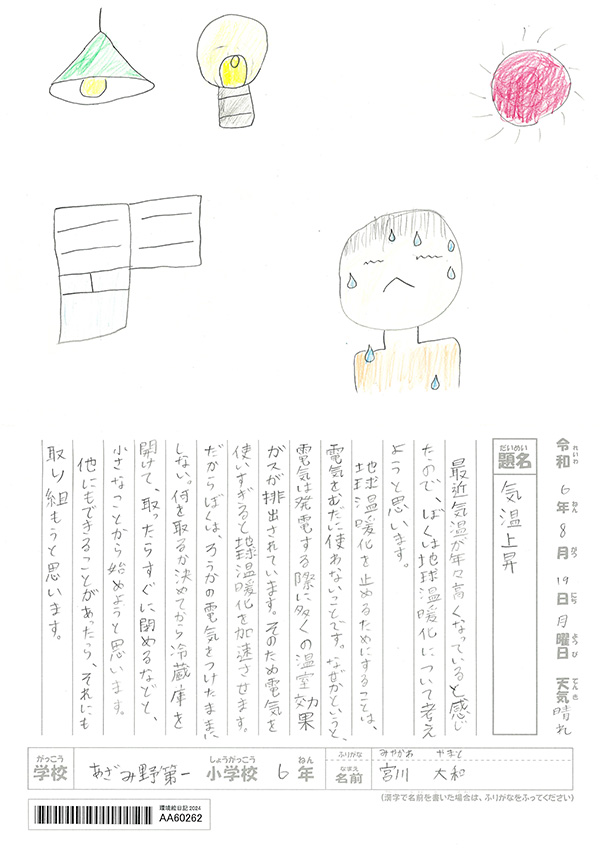 令和6年8月19日月曜日 天気晴れ
れいわ ねん がつ にち ようび てんき
だいめい
題名 気温上昇
最近気温が年々高くなっていると感じ
たので、ぼくは地球温暖化について考え
ようと思います。
地球温暖化を止めるためにすることは、
電気をむだに使わないことです。なぜかというと、
電気は発電する際に多くの温室効果
ガスが排出されています。そのため電気を
使いすぎると地球温暖化を加速させます。
だからぼくは、ろうかの電気をつけたままに
しない。何を取るか決めてから冷蔵庫を
開けて、取ったらすぐに閉めるなどと、
小さなことから始めようと思います。
他にもできることがあったら、それにも
取り組もうと思います。
がっこう しょうがっこう ねん ふりがな みやかわ やまと
学校 あざみ野第一 小学校 6年 なまえ 名前 宮川 大和
(漢字で名前を書いた場合は、ふりがなをふってください)
環境絵日記2024
AA60262